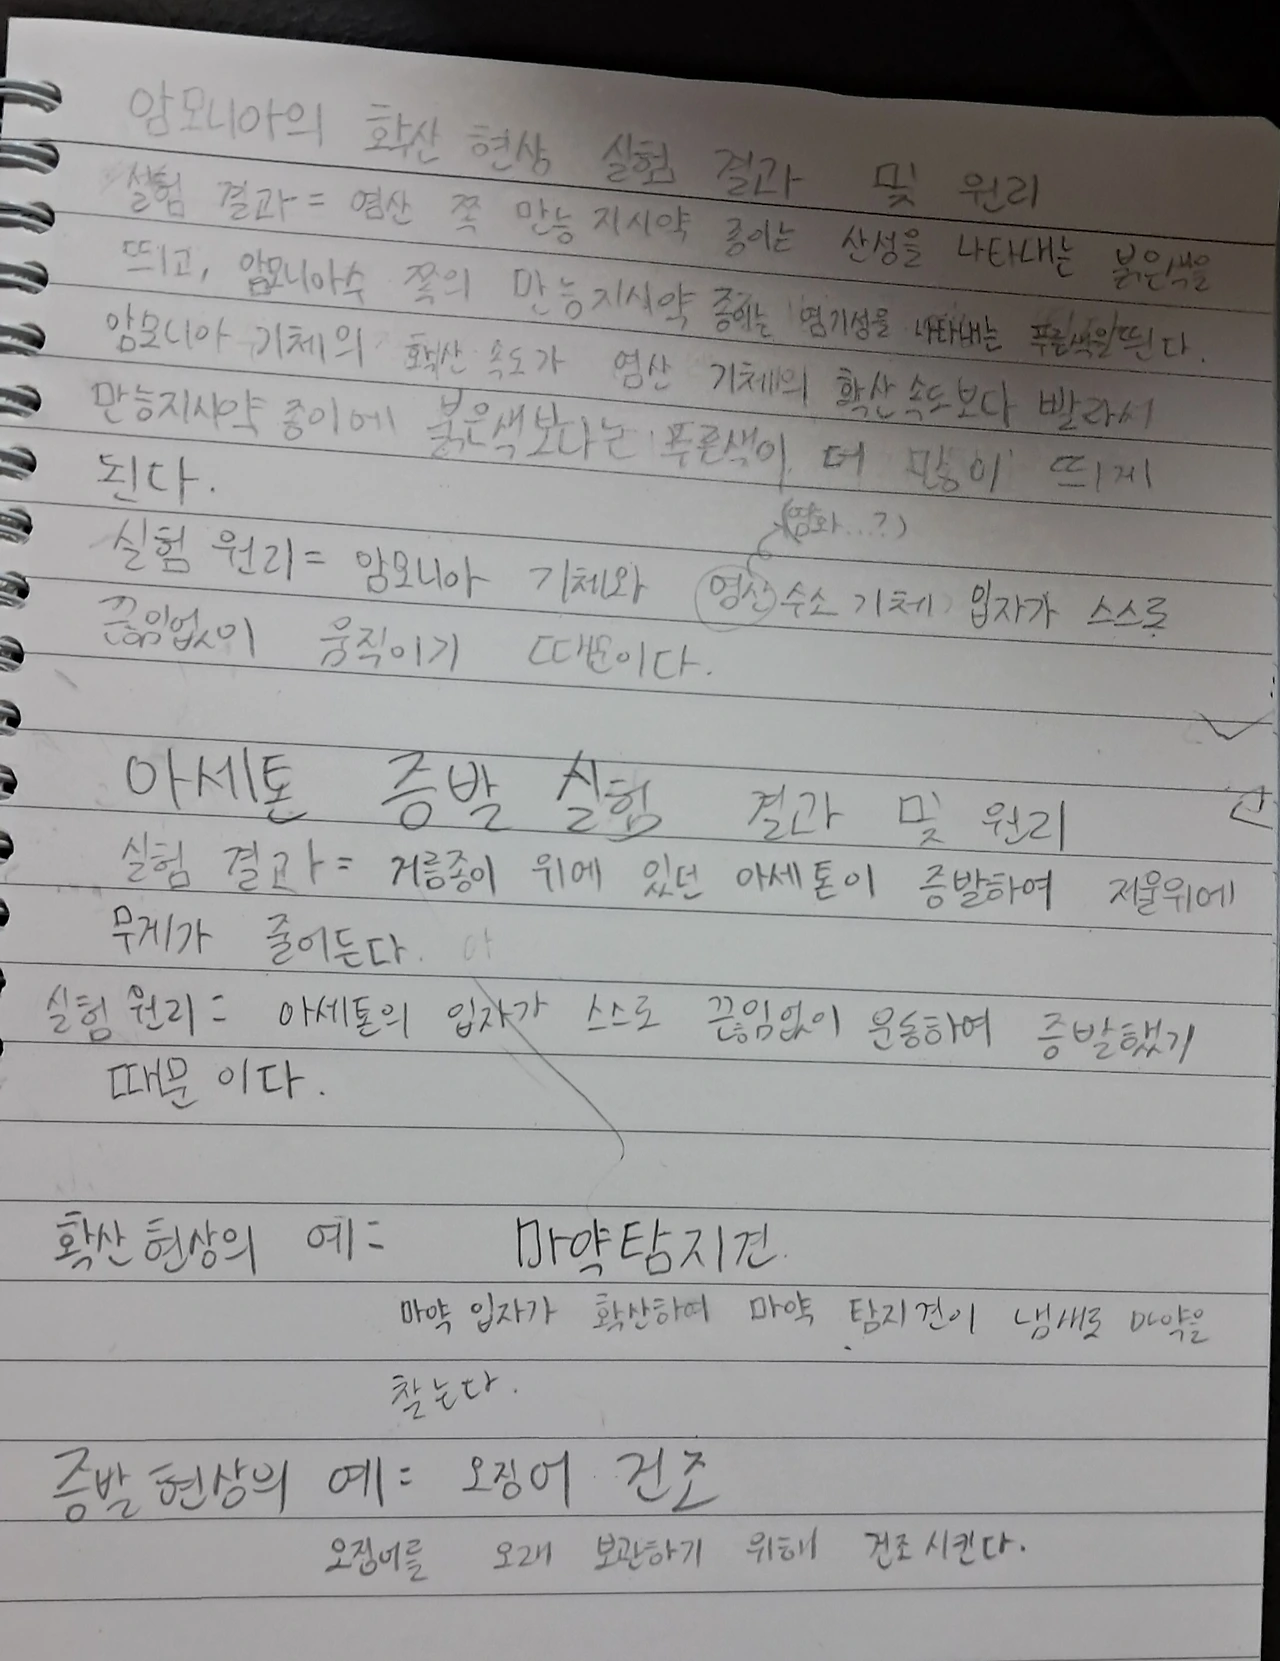 암모니아의 확산 현상 실험 결과 및 원리
실험 결과 = 염산 쪽 만능 지시약 종이는 산성을 나타내는 붉은색을
띄고, 암모니아수 쪽의 만능지시약 종이는 염기성을 나타내는 푸른색을 띈다.
암모니아 기체의 확산 속도가 염산 기체의 확산 속도보다 빨라서
만능지시약 종이에 붉은색보다는 푸른색이 더 많이 띄게
된다.
(염화...?)
실험 원리 = 암모니아 기체와 염산 수소 기체 입자가 스스로
끊임없이 움직이기 때문이다.
아세톤 증발 실험 결과 및 원리
실험 결과 = 거름종이 위에 있던 아세톤이 증발하여 저울위에
무게가 줄어든다. 아
실험 원리 = 아세톤의 입자가 스스로 끊임없이 운동하여 증발했기
때문이다.
확산 현상의 예 = 마약탐지견
마약 입자가 확산하여 마약 탐지견이 냄새로 마약을
찾는다.
증발 현상의 예 = 오징어 건조
오징어를 오래 보관하기 위해 건조시킨다.